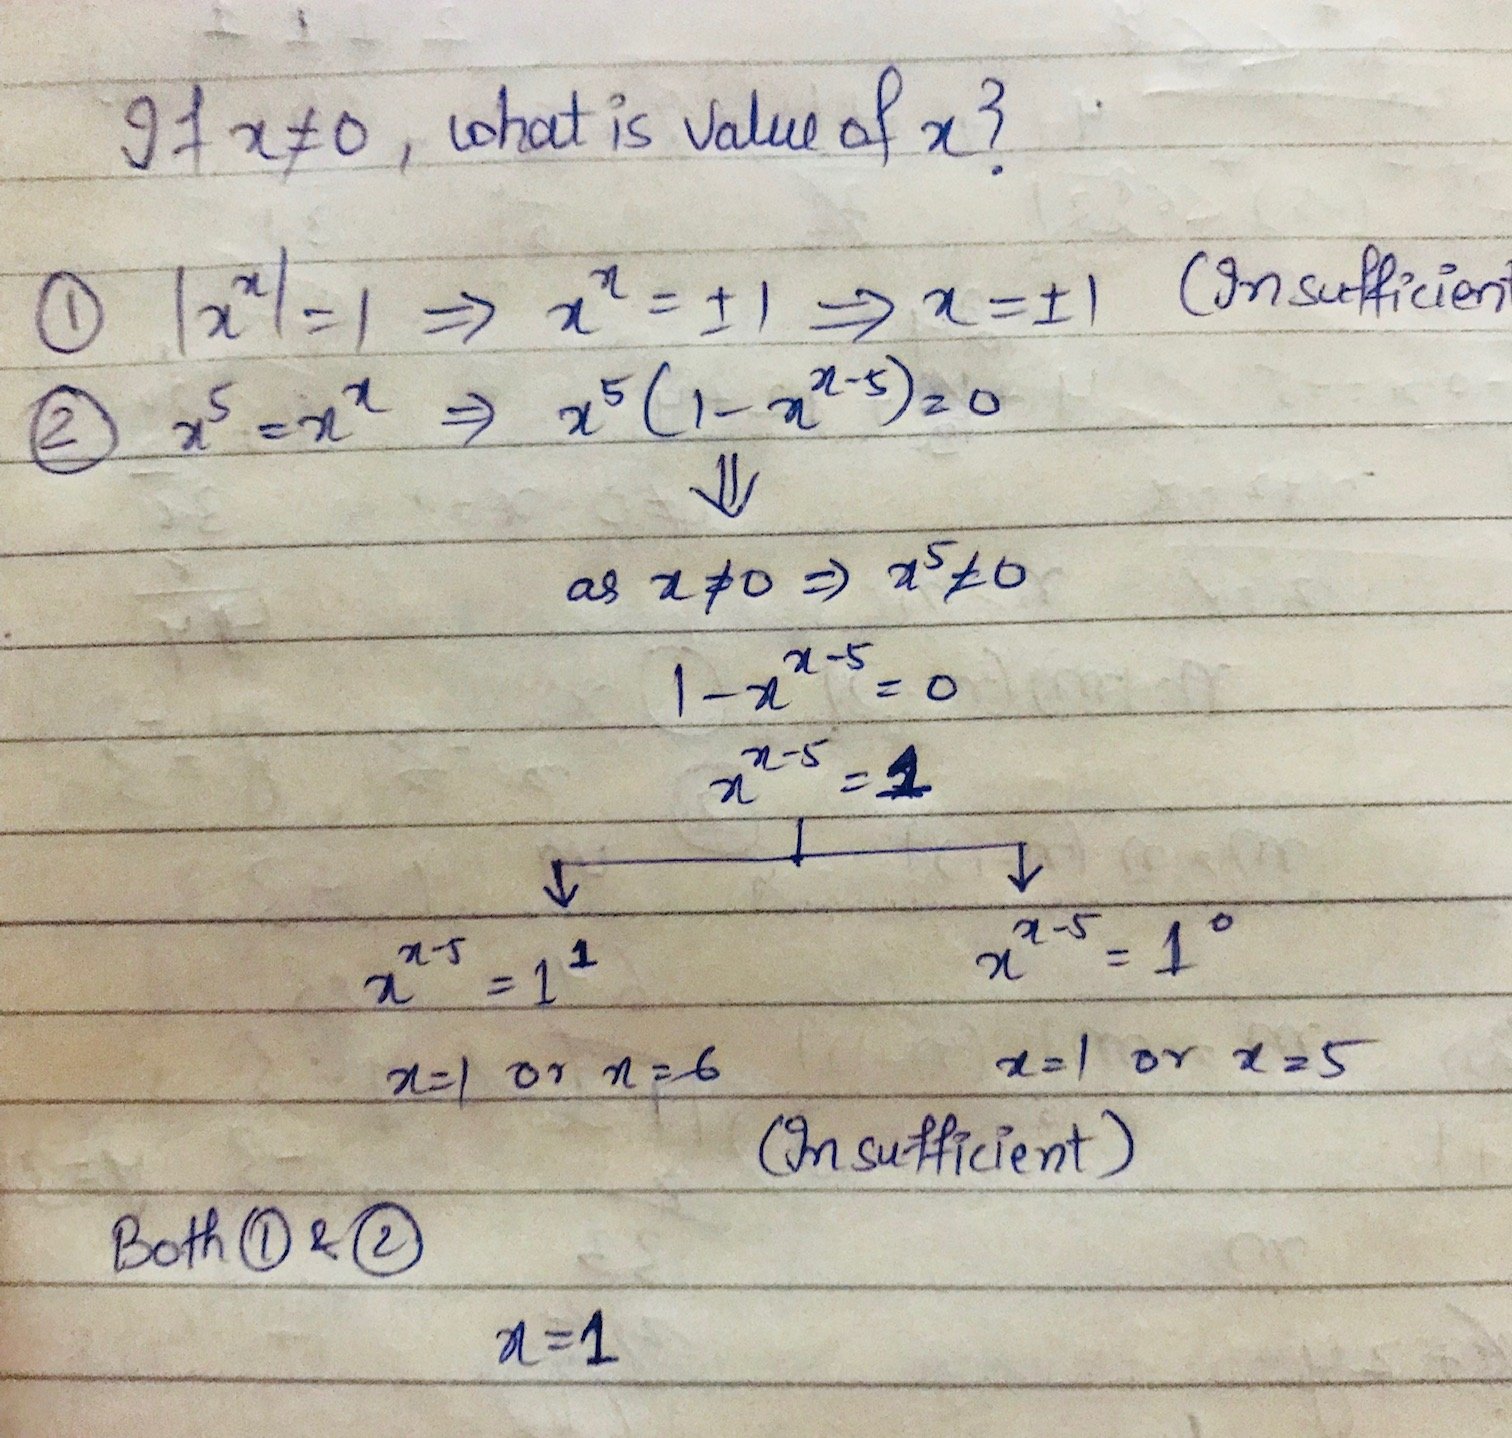 If x≠0, what is value of x?
① |x^x| = 1 ⇒ x^x = ±1 ⇒ x = ±1 (Insufficient
② x^5 = x^x ⇒ x^5(1 - x^(x-5)) = 0
⇓
as x≠0 ⇒ x^5≠0
1 - x^(x-5) = 0
x^(x-5) = 1
x^(x-5) = 1^1 x^(x-5) = 1^0
x=1 or x=6 x=1 or x=5
(Insufficient)
Both ① & ②
x=1